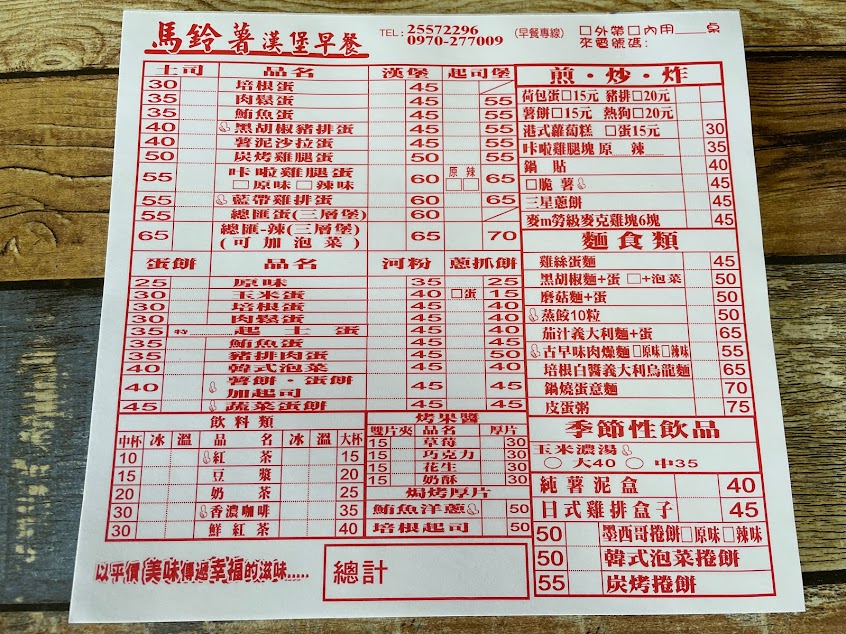 馬鈴薯漢堡早餐
TEL: 25572296 (早餐專線)
0970-277009
□外帶□內用___桌
來電號碼:
土司 品名 漢堡 起司堡
30 培根蛋 45
35 肉鬆蛋 45 55
35 鮪魚蛋 45 55
40 黑胡椒豬排蛋 45 55
40 薯泥沙拉蛋 45 55
50 炭烤雞腿蛋 50 55
55 咔啦雞腿蛋 60 原 辣 65
□原味□辣味 □ □
55 藍帶雞排蛋 60 65
55 總匯蛋(三層堡) 60
65 總匯-辣(三層堡) 65 70
(可加泡菜)
蛋餅 品名 河粉 蔥抓餅
25 原味 35 25
30 玉米蛋 40 □蛋 15
30 培根蛋 40 40
30 肉鬆蛋 40 40
35 特____起士蛋 45 40
35 鮪魚蛋 45 45
35 豬排肉蛋 45 50
40 韓式泡菜 45 45
40 薯餅·蛋餅 45 45
加起司
45 蔬菜蛋餅 45 45
飲料類
中杯 冰 溫 品名 冰 溫 大杯
10 紅茶 15
15 豆漿 20
20 奶茶 25
30 香濃咖啡 35
30 鮮紅茶 40
烤果醬
雙片夾 品名 厚片
15 草莓 30
15 巧克力 30
15 花生 30
15 奶酥 30
焗烤厚片
鮪魚洋蔥 50
培根起司 50
以平價美味傳遞幸福的滋味.....
總計
煎·炒·炸
荷包蛋□15元 豬排□20元
薯餅□15元 熱狗□20元
港式蘿蔔糕 □蛋15元 30
咔啦雞腿塊 原__辣__ 35
鍋貼 40
□脆薯 45
三星蔥餅 45
麥m勞級麥克雞塊6塊 45
麵食類
雞絲蛋麵 45
黑胡椒麵+蛋 □+泡菜 50
磨菇麵+蛋 50
蒸餃10粒 50
茄汁義大利麵+蛋 65
古早味肉燥麵□原味□辣味 55
培根白醬義大利烏龍麵 65
鍋燒蛋意麵 70
皮蛋粥 75
季節性飲品
玉米濃湯
○ 大40 ○ 中35
純薯泥盒 40
日式雞排盒子 45
50 墨西哥捲餅□原味□辣味
50 韓式泡菜捲餅
55 炭烤捲餅